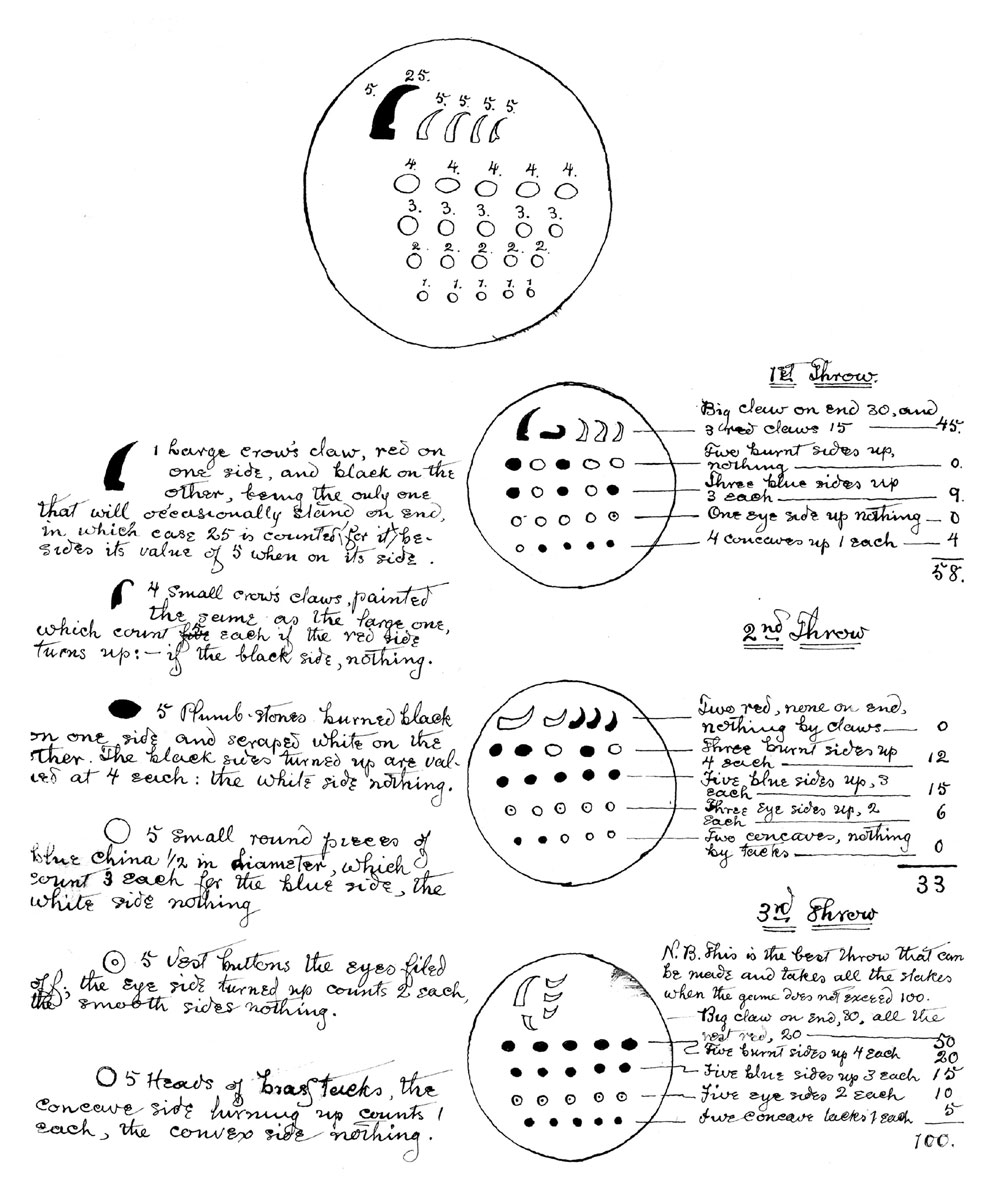 25.
5. 5. 5. 5. 5.
4. 4. 4. 4. 4.
3. 3. 3. 3. 3.
2. 2. 2. 2. 2.
1. 1. 1. 1. 1
1 Large crow's claw, red on
one side, and black on the
other, being the only one
that will occasionally stand on end,
in which case 25 is counted for it, be-
sides its value of 5 when on its side.
4 Small crow's claws, painted
the same as the large one,
which count 5 each if the red side
turns up:- if the black side, nothing.
5 Plumb-stones burned black
on one side and scraped white on the
other. The black sides turned up are val-
ued at 4 each: the white side nothing.
5 Small round pieces of
blue China 1/2 in diameter, which
count 3 each for the blue side, the
white side nothing
5 Vest buttons the eyes filed
off; the eye side turned up counts 2 each,
the smooth sides nothing.
5 Heads of brass tacks, the
concave side turning up counts 1
each, the convex side nothing.
1st Throw.
Big claw on end 30, and
3 red claws 15 45.
Two burnt sides up,
nothing 0.
Three blue sides up
3 each 9.
One eye side up nothing 0
4 concaves up 1 each 4
58.
2nd Throw
Two red, none on end,
nothing by claws 0
Three burnt sides up
4 each 12
Five blue sides up, 3
each 15
Three Eye sides up, 2
Each 6
Two concaves, nothing
by tacks 0
33
3rd Throw
N.B. This is the best throw that can
be made and takes all the stakes
when the game does not exceed 100.
Big claw on End, 30, all the
rest red, 20 50
Five burnt sides up 4 each 20
Five blue sides up 3 each 15
Five eye sides 2 each 10
Five concave tacks 1 each 5
100.